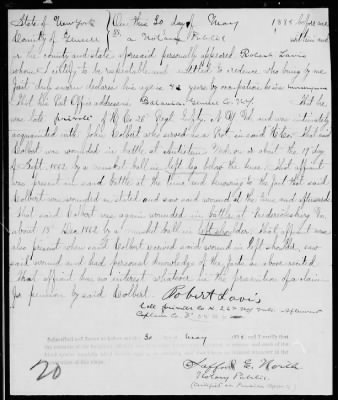 State of New York } On this 30 day of May 1885 before me
County of Genesee } ss. a Notary Public within and
for the county and state aforesaid personally appeared Robert Davis
whom I certify to be reputable and entitled to credence who being by me
first duly sworn declares his age is years by occupation he is
that his Post Office address is Batavia Genesee Co. N.Y. that he
was late private of K Co. 28" Regt Infty. N.Y. Vol and was intimately
acquainted with John Colbert who served in a Vol. in said K Co. that said
Colbert was wounded in battle at Antietam Md. on or about the 17 day
of Sept. 1862 by a musket ball in left leg below the knee, that affiant
was present in said battle at the time and knowing to the fact that said
Colbert was wounded as stated and saw said wound at the time and afterward
that said Colbert was again wounded in battle at Fredericksburg Va.
about 13" Dec. 1862 by a musket ball in left shoulder that affiant was
also present when said Colbert received said wound in left shoulder, saw
said wound and had personal knowledge of the facts in above stated.
That affiant has no interest whatever in the prosecution of a claim
for pension by said Colbert.
Robert Davis
Late private Co. K 28" Afterward
Captain Co.
30 May
Safford E. North
Notary Public
20